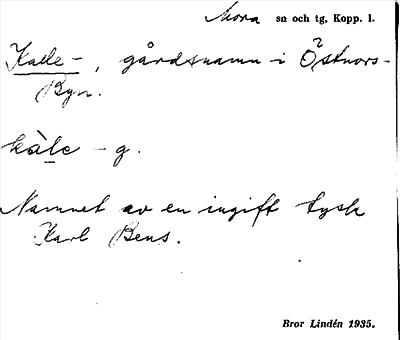 Mora sn och tg. Kopp. l.
Kalle-, gårdsnamn i Östnors-
Byn.
kàle - g.
Namnet av en ingift tysk
Karl Bens.
Bror Lindén 1935.